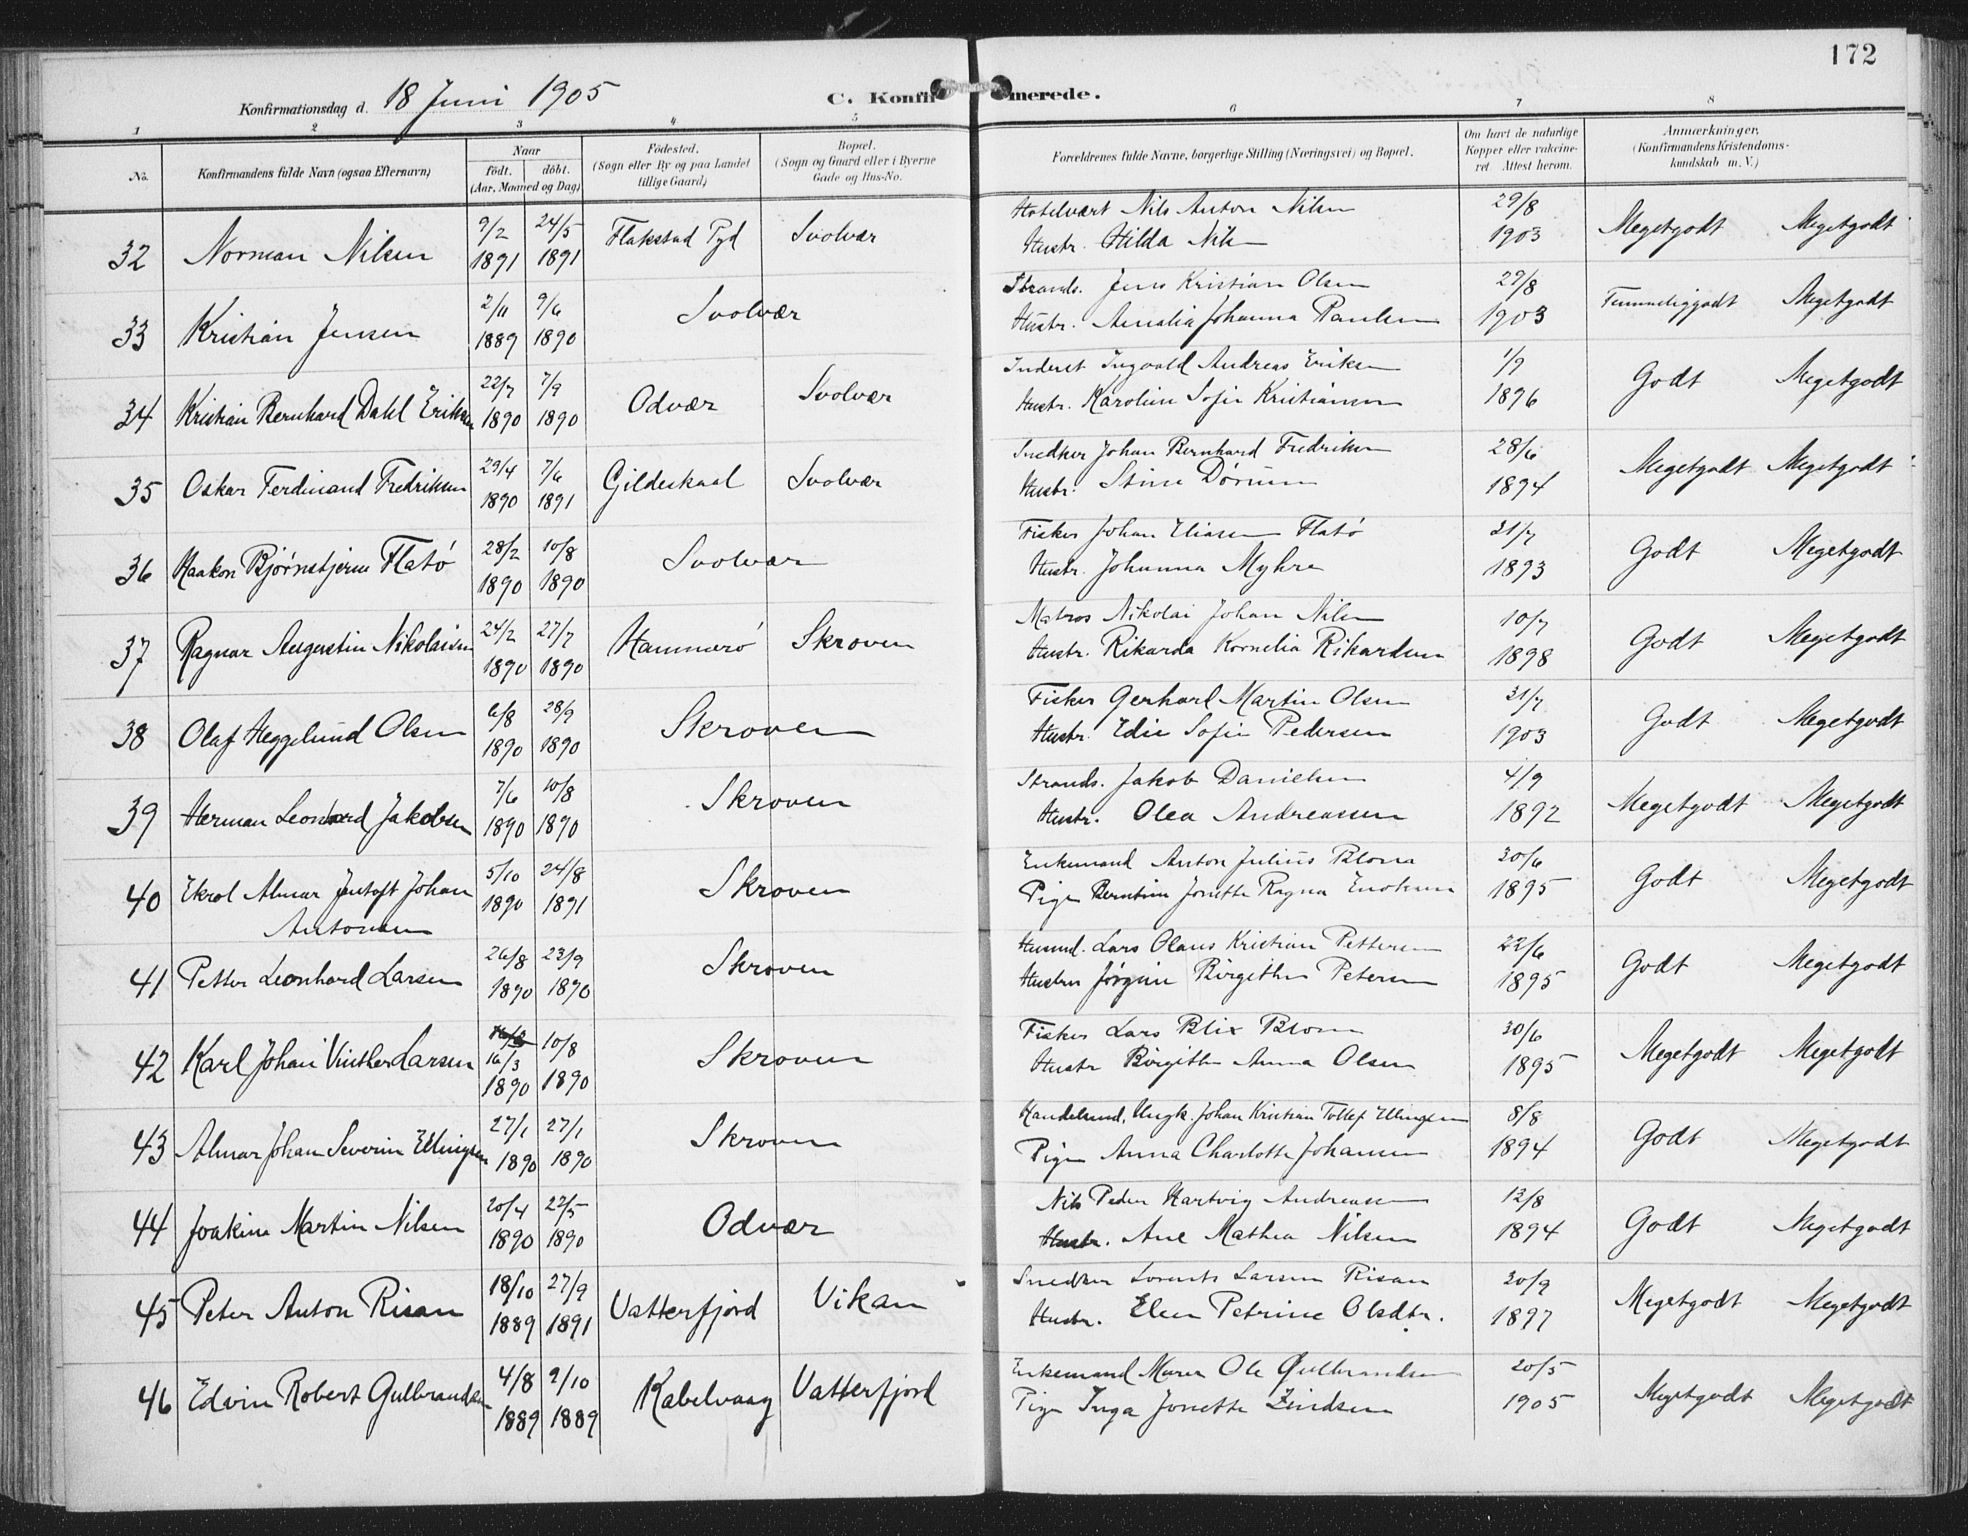 172
Konfirmationsdag d. 18 Juni 1905
C. Konfirmerede.
1 2 3 4 5 6 7 8
No.
Konfirmandens fulde Navn (ogsaa Efternavn)
Naar
født. døbt.
(Aar, Maaned og Dag)
Fødested.
(Sogn eller By og paa Landet
tillige Gaard)
Bopæl.
(Sogn og Gaard eller i Byerne
Gade og Hus-No.
Forældrenes fulde Navne, borgerlige Stilling (Næringsvei) og Bopæl.
Om havt de naturlige
Kopper eller vaccine-
ret. Attest herom.
Anmærkninger,
(Konfirmandens Kristendoms-
kundskab m. V.)
32 Norman Nilsen 9/2 1891 24/5 1891 Flakstad Pgd Svolvær
Hotelvært Nils Anton Nilsen 29/8
Hustr. Hilda Nilsen 1903 Megetgodt Megetgodt
33 Kristian Jensen 2/11 1889 9/6 1890 Svolvær
Strands. Jens Kristian Olsen 29/8
Hustr. Amalia Johanna Paulsen 1903 Temmeliggodt Megetgodt
34 Kristian Bernhard Dahl Eriksen 22/7 1890 7/9 1890 Odvær Svolvær
Inderst Ingvald Andreas Eriksen 1/9
Hustr. Karoline Sofie Kristiansen 1896 Godt Megetgodt
35 Oskar Ferdinand Fredriksen 29/4 1890 7/6 1891 Gildeskaal Svolvær
Snedker Johan Bernhard Fredriksen 28/6
Hustr. Stine 1894 Megetgodt Megetgodt
36 Haakon Bjørnstjerne Flatø 28/2 1890 10/8 1890 Svolvær
Fisker Johan Eliasen Flatø 21/7
Hustr. Johanna Myhre 1893 Godt Megetgodt
37 Ragnar Augustin Nikolaisen 24/2 1890 27/7 1890 Hammerø Skroven
Matros Nikolai Johan Nilsen 10/7
Hustr. Rikarda Kornelia Rikardsen 1898 Godt Megetgodt
38 Olaf Heggelund Olsen 6/8 1890 28/9 1890 Skroven
Fisker Gerhard Martin Olsen 31/7
Hustr. Edie Sofie Pedersen 1903 Godt Megetgodt
39 Herman Leonhard Jakobsen 7/6 1890 10/8 1890 Skroven
Strands. Jakob Danielsen 4/9
Hustr. Olea Andreassen 1892 Megetgodt Megetgodt
40 Ekrol Almar Jentoft Johan 5/10 1890 24/8 1891 Skroven
Antonsen
Enkemand Anton Julius Blom 30/6
Pige Berntine Jonette Ragna Enoksen 1895 Godt Megetgodt
41 Petter Leonhard Larsen 26/8 1890 23/9 1890 Skroven
Husmd. Lars Olaus Kristian Pettersen 22/6
Hustru Jørgine Birgithe Petersen 1895 Godt Megetgodt
42 Karl Johan Vinther Larsen 16/3 1890 10/8 1890 Skroven
Fisker Lars Blix Blom 30/6
Hustr Birgithe Anna Olsen 1895 Megetgodt Megetgodt
43 Almar Johan Severin Ellingsen 27/1 1890 27/1 1890 Skroven
Handelsmd. Ungk. Johan Kristian Tollef Ellingsen 8/8
Pige Anna Charlotte Johansen 1894 Godt Megetgodt
44 Joakim Martin Nilsen 20/4 1890 22/5 1890 Odvær
Nils Peder Hartvig Andreassen 12/8
Hustr. Ane Mathea Nilsen 1894 Godt Megetgodt
45 Peter Anton Risan 18/10 1889 27/9 1891 Vatterfjord Vikan
Snedker Lorents Larsen Risan 20/9
Hustr. Elen Petrine Olsdtr. 1897 Megetgodt Megetgodt
46 Edvin Robert Gulbrandsen 4/8 1889 9/10 1889 Kabelvaag Vatterfjord
Enkemand Murer Ole Gulbrandsen 20/5
Pige Inga Jonette Zindsen 1905 Megetgodt Megetgodt